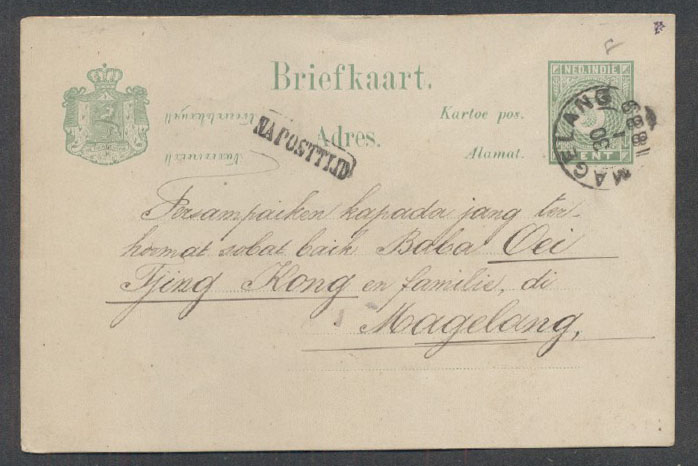 Briefkaart.
NED. INDIE
Kartoe pos.
NAPOSTTIJD
Adres.
Alamat.
CENT
MAGELANG
30
1
1889
Persampaiken kapada jang ter-
hormat sobat baik Baba Oei
Tjing Kong en familie, di
Magelang,